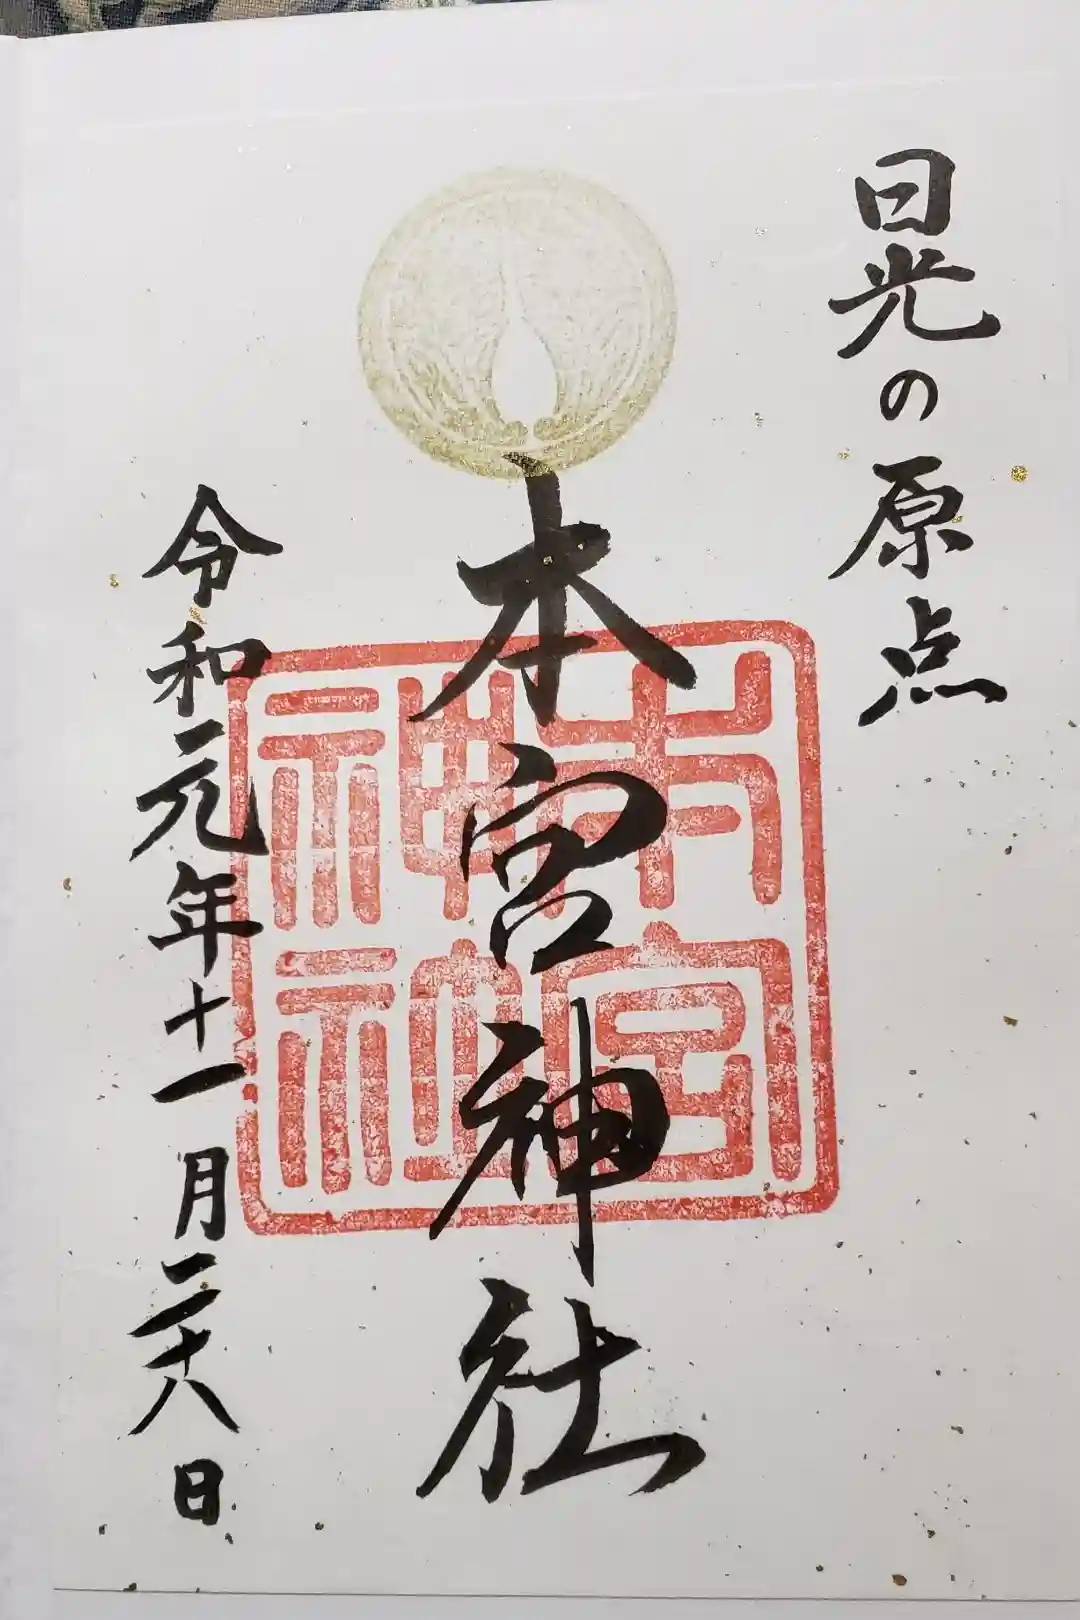 日光の原点
本宮神社
本宮
神社
令和元年十一月二十八日